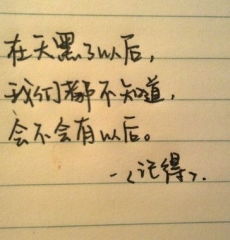 在天黑了以后，
我们都不知道，
会不会有以后。
—《记得》.